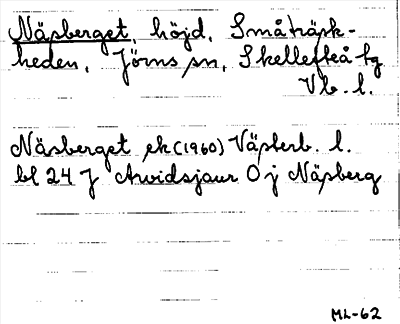 Näsberget, höjd, Småträsk-
heden, Jörns sn, Skellefteå tg
Vb. l.
Näsberget ek (1960) Västerb. l.
bl 24 J Arvidsjaur O j Näsberg
ML-62